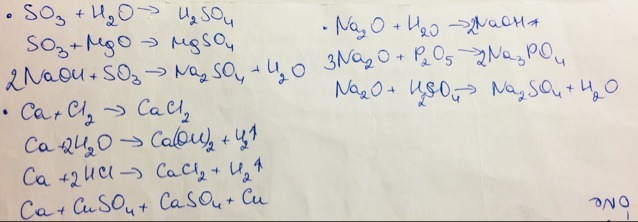 · SO₃ + H₂O → H₂SO₄
SO₃ + MgO → MgSO₄
2NaOH + SO₃ → Na₂SO₄ + H₂O
· Ca + Cl₂ → CaCl₂
Ca + 2H₂O → Ca(OH)₂ + H₂↑
Ca + 2HCl → CaCl₂ + H₂↑
Ca + CuSO₄ + CaSO₄ + Cu
· Na₂O + H₂O → 2NaOH
3Na₂O + P₂O₅ → 2Na₃PO₄
Na₂O + H₂SO₄ → Na₂SO₄ + H₂O